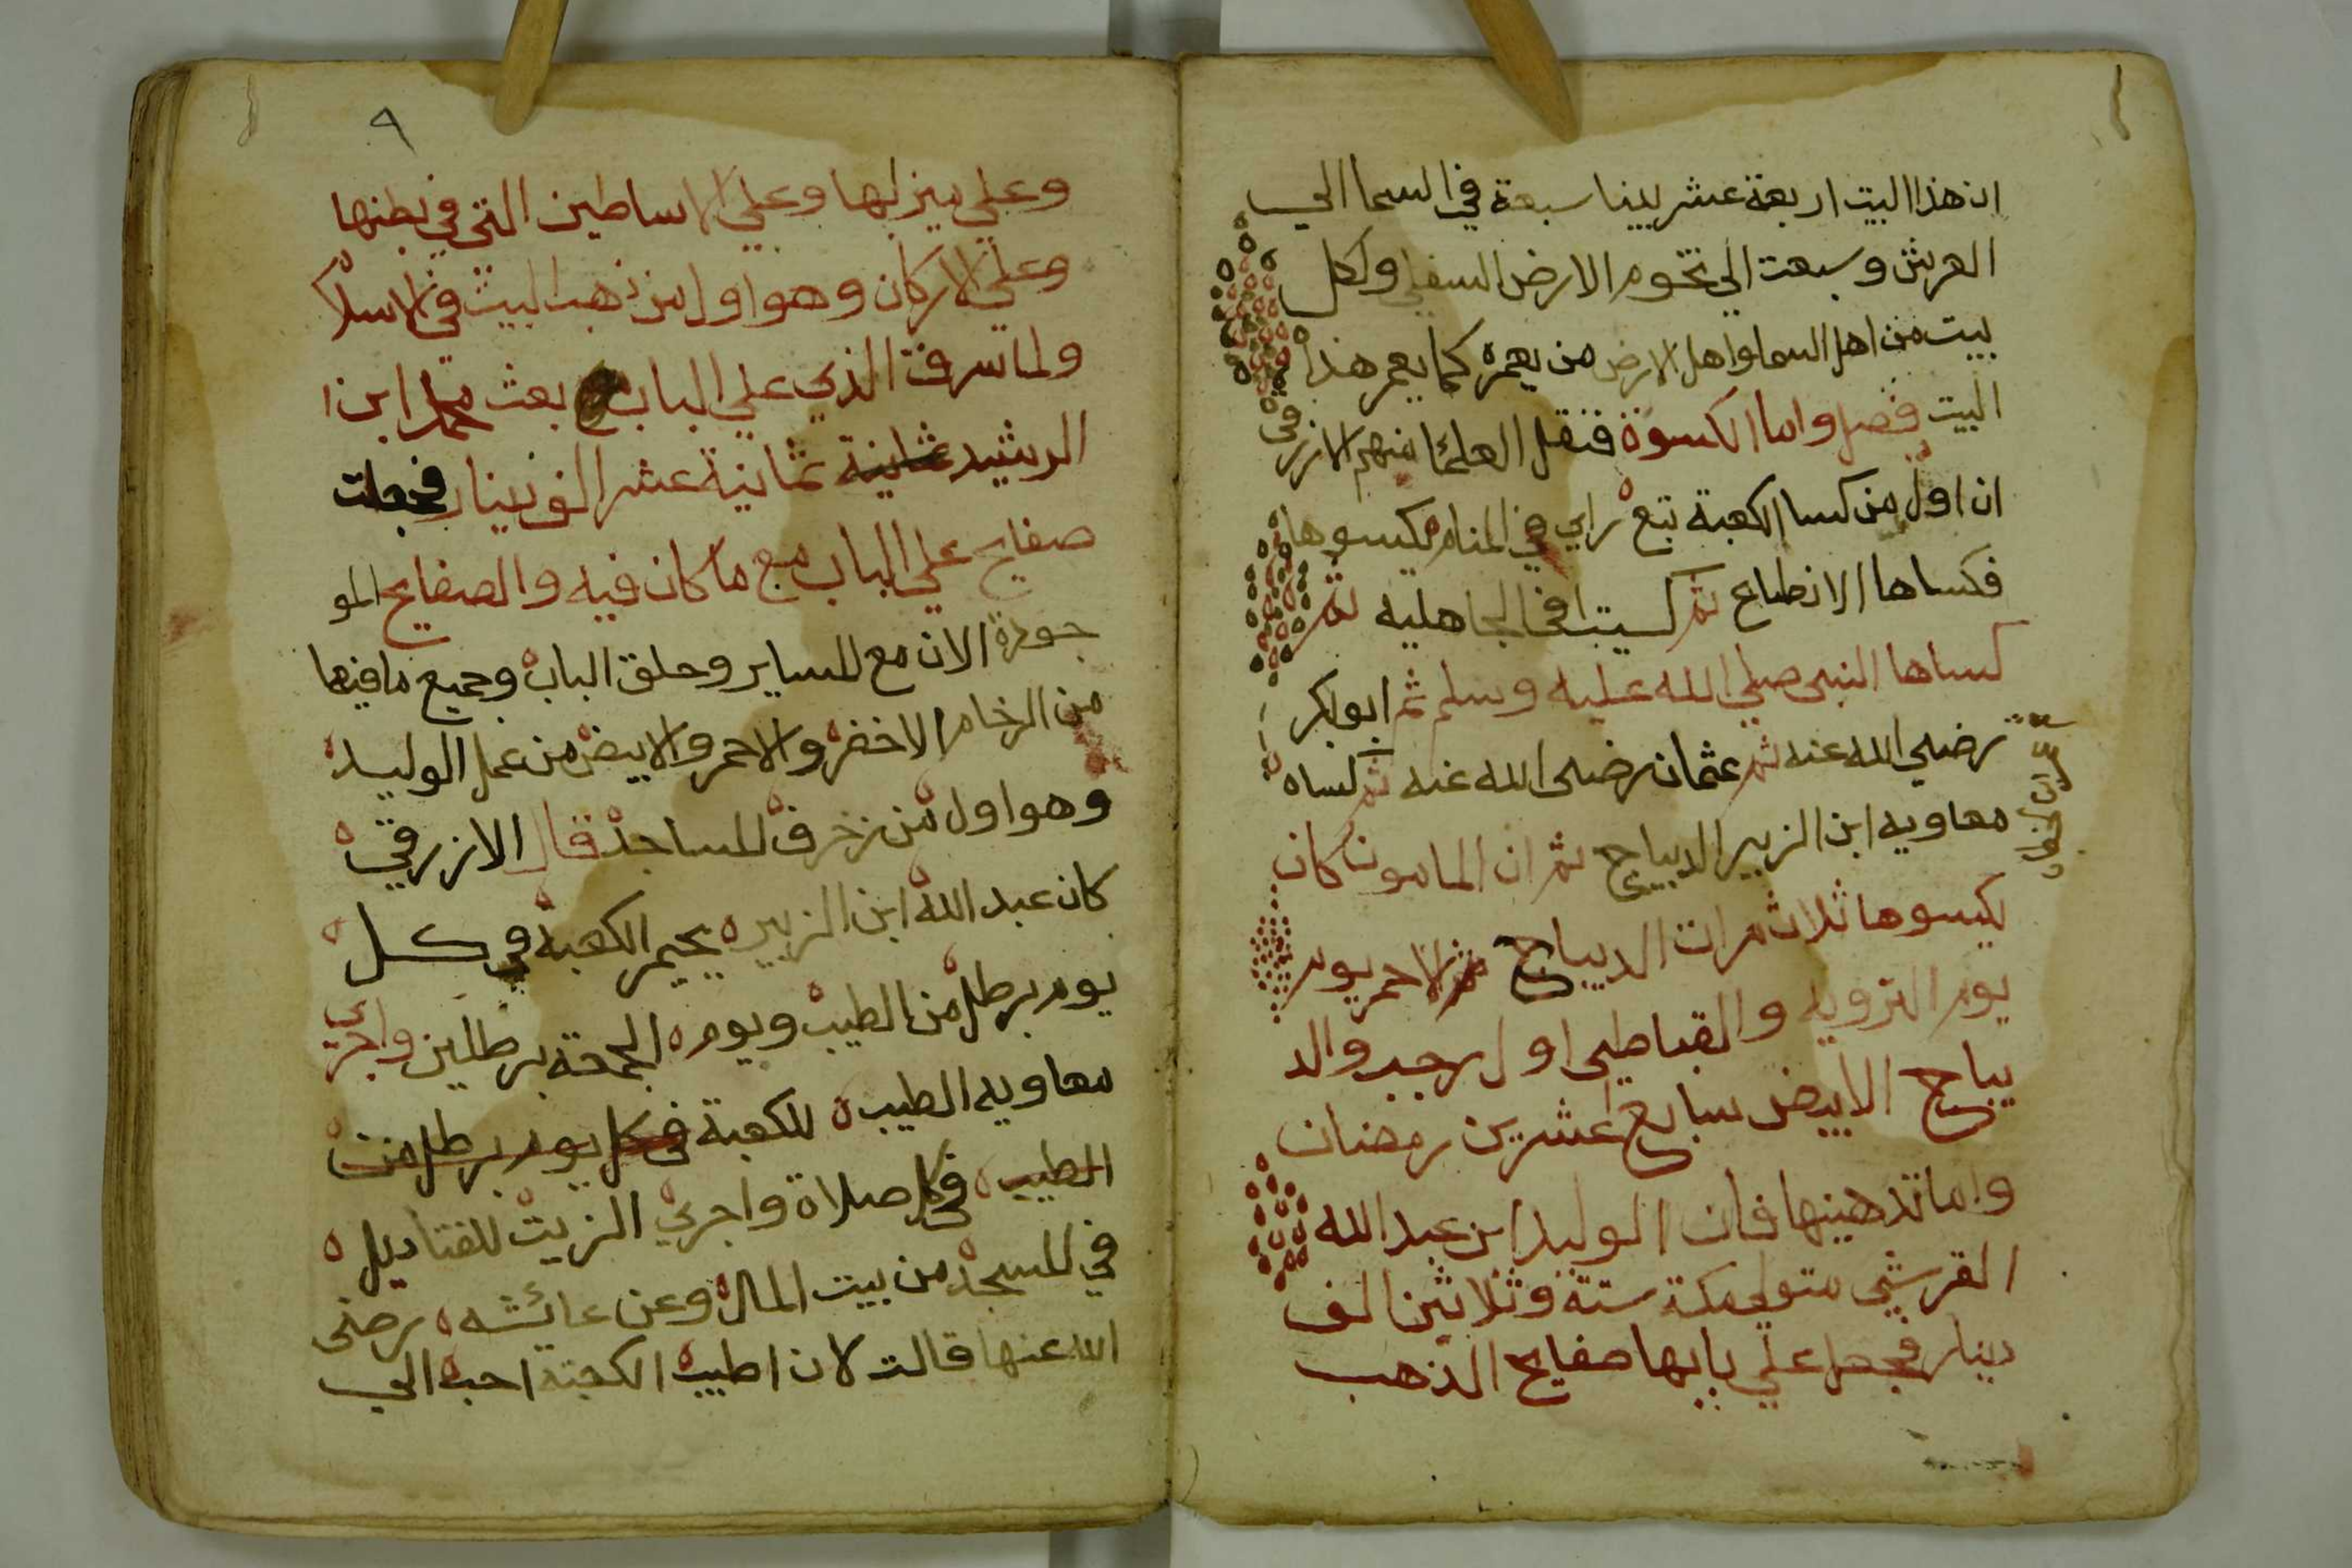 ان هذا البيت اربعة عشر بيتا سبعة في السما الي
العرش وسبعت الي تخوم الارض السفلي ولكل
بيت من اهل السما واهل الارض من يعمره كما يعمر هذا
البيت فصل واما الكسوة فنقل العلما منهم الازرقي
ان اول من كسا الكعبة تبع راي في المنام يكسوها
فكساها الانطاع ثم كسيت في الجاهلية ثم
كساها النبي صلي الله عليه وسلم ثم ابو بكر
رضي الله عنه ثم عثمان رضي الله عنه ثم كساه
معاويه ابن الزبير الديباج ثم ان المامون كان
يكسوها ثلاث مرات الديباج الاحمر يوم
يوم الترويه والقباطي اول رجب والد
يباج الابيض سابع عشرين رمضان
واما تذهينها فان الوليد ابن عبد الله
القرشي متولي مكة ستة وثلاثين الف
دينار فجعل علي بابها صفايح الذهب
٩
وعلي ميزابها وعلي الاساطين التي في بطنها
وعلي الاركان وهو اول من ذهب البيت في الاسلا
ولما سرق الذي علي الباب بعث محمد ابن
الرشيد ثمانية ثمانية عشر الف دينار فجعلت
صفايح علي الباب مع ما كان فيه والصفايح المو
جودة الان مع المساير وحلق الباب وجميع ما فيها
من الرخام الاخضر والاحمر والابيض من عمل الوليد
وهو اول من زخرف المساجد قال الازرقي
كان عبد الله ابن الزبير يجمر الكعبة في كل
يوم برطل من الطيب ويوم الجمعة برطلين واجري
معاويه الطيب للكعبة في كل يوم برطل من
الطيب في كل صلاة واجري الزيت للقناديل
في المسجد من بيت المال وعن عائشه رضي
الله عنها قالت لان اطيب الكعبة احب الي